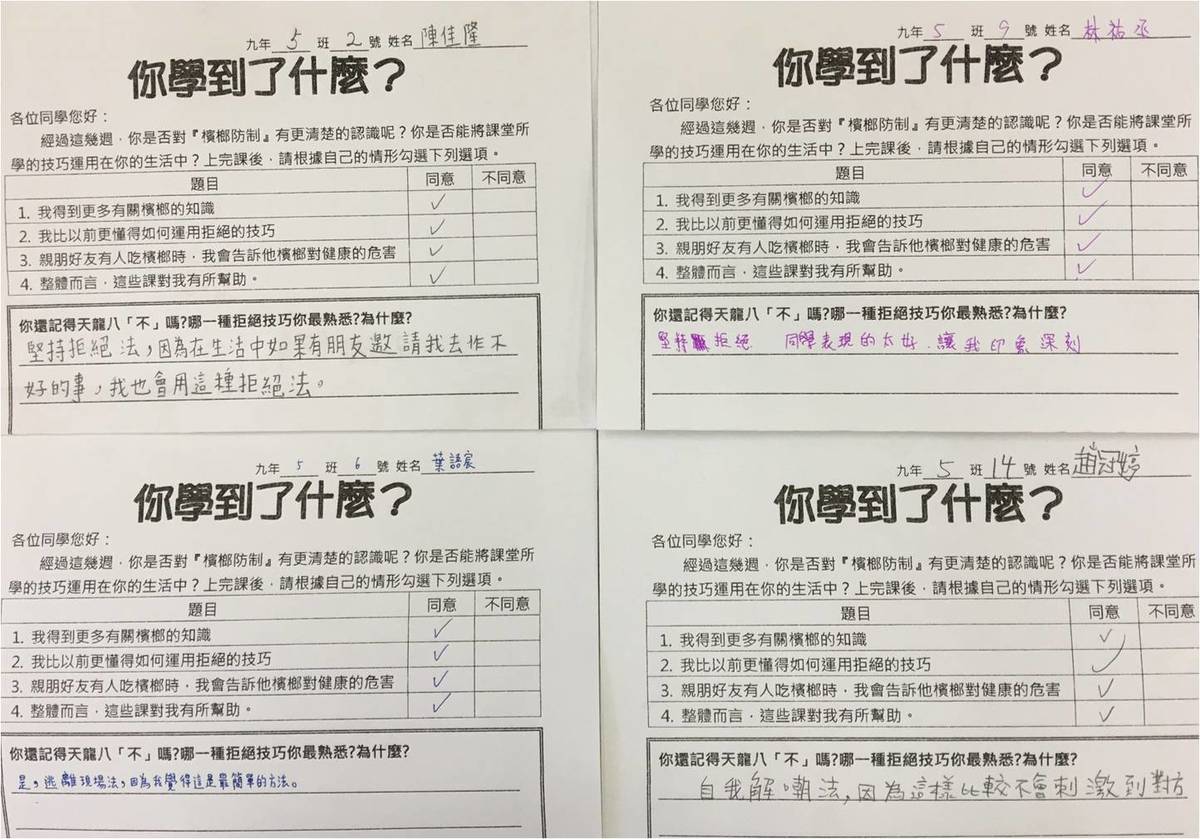 九年 5 班 2 號 姓名 陳佳隆
你學到了什麼？
各位同學您好：
經過這幾週，你是否對『檳榔防制』有更清楚的認識呢？你是否能將課堂所
學的技巧運用在你的生活中？上完課後，請根據自己的情形勾選下列選項。
題目 同意 不同意
1. 我得到更多有關檳榔的知識 ✓
2. 我比以前更懂得如何運用拒絕的技巧 ✓
3. 親朋好友有人吃檳榔時，我會告訴他檳榔對健康的危害 ✓
4. 整體而言，這些課對我有所幫助。 ✓
你還記得天龍八「不」嗎?哪一種拒絕技巧你最熟悉?為什麼?
堅持拒絕法，因為在生活中如果有朋友邀請我去作不
好的事，我也會用這種拒絕法。
九年 5 班 9 號 姓名 林祐丞
你學到了什麼？
各位同學您好：
經過這幾週，你是否對『檳榔防制』有更清楚的認識呢？你是否能將課堂所
學的技巧運用在你的生活中？上完課後，請根據自己的情形勾選下列選項。
題目 同意 不同意
1. 我得到更多有關檳榔的知識 ✓
2. 我比以前更懂得如何運用拒絕的技巧 ✓
3. 親朋好友有人吃檳榔時，我會告訴他檳榔對健康的危害 ✓
4. 整體而言，這些課對我有所幫助。 ✓
你還記得天龍八「不」嗎?哪一種拒絕技巧你最熟悉?為什麼?
堅持拒絕 同學表現的太好．讓我印象深刻
九年 5 班 6 號 姓名 葉語宸
你學到了什麼？
各位同學您好：
經過這幾週，你是否對『檳榔防制』有更清楚的認識呢？你是否能將課堂所
學的技巧運用在你的生活中？上完課後，請根據自己的情形勾選下列選項。
題目 同意 不同意
1. 我得到更多有關檳榔的知識 ✓
2. 我比以前更懂得如何運用拒絕的技巧 ✓
3. 親朋好友有人吃檳榔時，我會告訴他檳榔對健康的危害 ✓
4. 整體而言，這些課對我有所幫助。 ✓
你還記得天龍八「不」嗎?哪一種拒絕技巧你最熟悉?為什麼?
是，逃離現場法，因為我覺得這是最簡單的方法。
九年 5 班 14 號 姓名 趙冠婷
你學到了什麼？
各位同學您好：
經過這幾週，你是否對『檳榔防制』有更清楚的認識呢？你是否能將課堂所
學的技巧運用在你的生活中？上完課後，請根據自己的情形勾選下列選項。
題目 同意 不同意
1. 我得到更多有關檳榔的知識 ✓
2. 我比以前更懂得如何運用拒絕的技巧 ✓
3. 親朋好友有人吃檳榔時，我會告訴他檳榔對健康的危害 ✓
4. 整體而言，這些課對我有所幫助。 ✓
你還記得天龍八「不」嗎?哪一種拒絕技巧你最熟悉?為什麼?
自我解嘲法，因為這樣比較不會刺激到對方